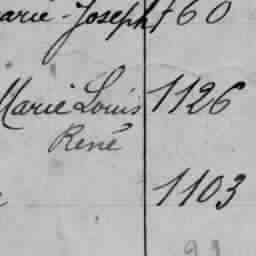 arie-Joseph 760
Marie Louis 1126
René
1103